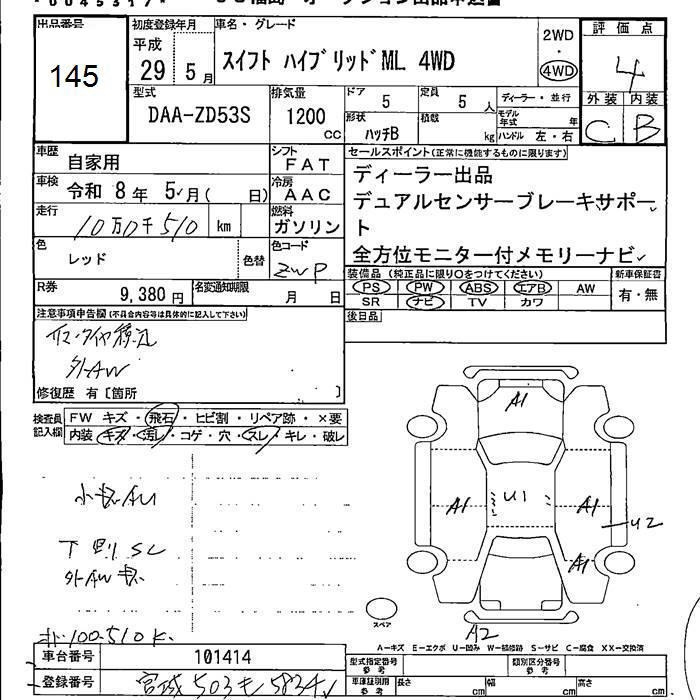 出品番号
145
初度登録年月
平成
29 5月
車名・グレード
スイフト ハイブリッドML 4WD
2WD
・
4WD
評価点
4
外装 内装
C B
型式
DAA-ZD53S
排気量
1200
CC
ドア
5
定員
5 人
形状
ハッチB
積載
kg
ディーラー・並行
モデル年式 年
ハンドル 左・右
車歴
自家用
シフト
FAT
車検
令和 8年 5月( 日)
冷房
AAC
走行
10万0千510 km
燃料
ガソリン
色
レッド
色替
色コード
ZWP
R券
9,380円
名変通知期限
月 日
セールスポイント(正常に機能するものに限ります)
ディーラー出品
デュアルセンサーブレーキサポー
ト
全方位モニター付メモリーナビ
装備品(純正品に限り○をつけてください)
PS PW ABS エアB AW
SR ナビ TV カワ
新車保証書
有・無
後日品
注意事項申告欄(不具合内容等は具体的に記入して下さい)
外AW
修復歴 有〔箇所 〕
検査員
記入欄
FW キズ・飛石・ヒビ割・リペア跡・×要
内装・キズ・汚れ・コゲ・穴・スレ・キレ・破レ
小キズAU
下廻SL
外AWキズ
A1
A1
U1
A1
U2
A1
A2
スペア
100510K
A−キズ E−エクボ U−凹み W−補修跡 S−サビ C−腐食 XX−交換済
車台番号
101414
登録番号
宮城503モ5834
型式指定番号
参考
類別区分番号
参考
車庫証明用
参考
長さ cm
幅 cm
高さ cm